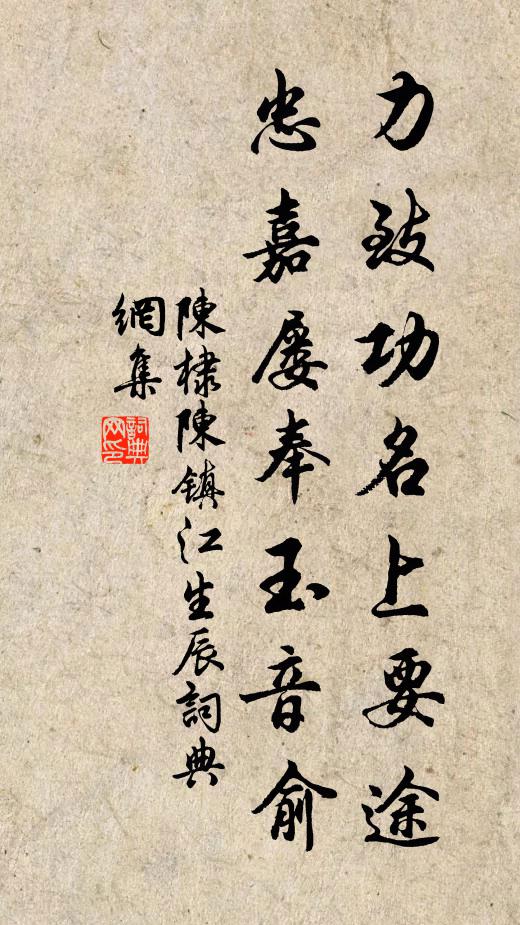 力致功名上要途
忠嘉屡奉玉音俞
陳棣陳鎮江生辰詞典
網集
詞典网印